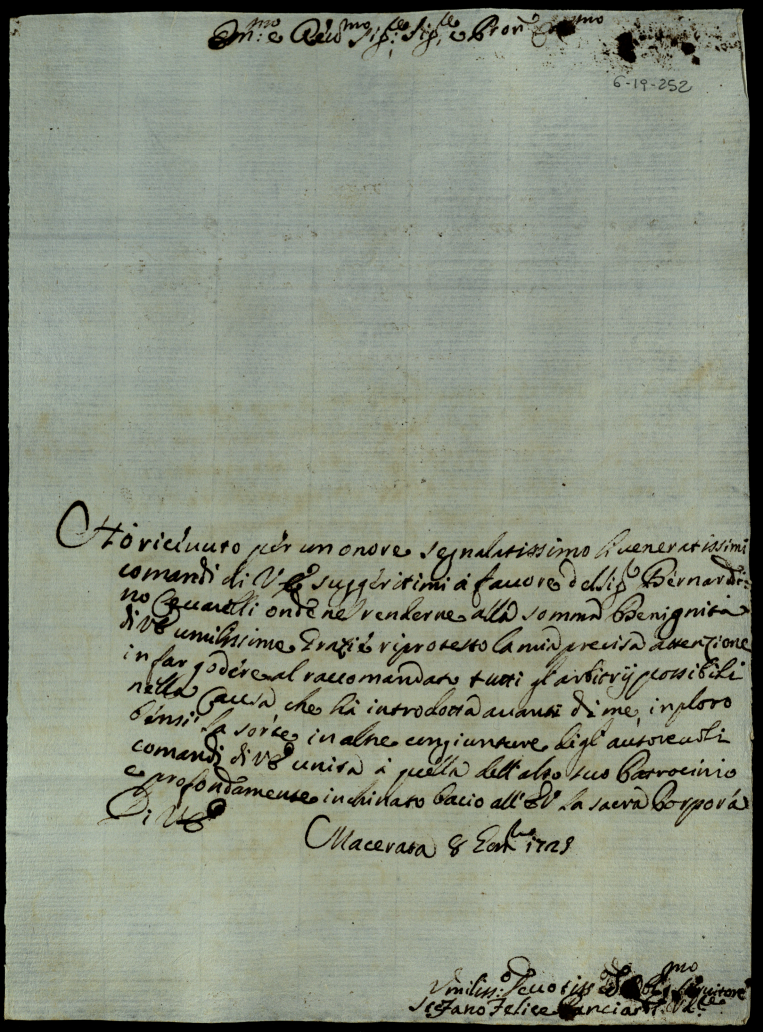 Em.mo e Re.mo Sig.re Sig.re e Pron
6-19-252
Hò riceuuto per un onore segnalatissimo li ueneratissimi
comandi di V.E. suggeritimi à fauore del Sig.r Bernardi-
no onde nel renderne alla somma Benignità
di V.E. umilissime Grazie riprotesto la mia precisa attenzione
in far godere al raccomandato tutti gl'arbitrij possibili
nella Causa che hà introdotta auanti di me, inploro
bensì la sorte in altre congiunture degl'autoreuoli
comandi di V.E. unita à quella dell'alto suo Patrocinio
e profondamente inchinato bacio all'E.V. la sacra Porpora
Di V.E.
Macerata 8
Umiliss.o Deuotiss.o
Stefano Felice